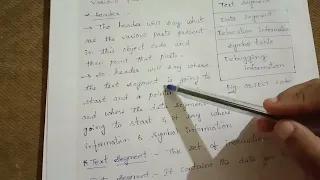 • Header -
→ The header will say what
are the various parts present
in this object code and
then point that parts.
→ So header will say where
the text segment is going to
start and a pointer
and where the data segment
going to start & it say where
information & symbol information
* Text Segment - The set of instruction
segment - It contains the data
Text segment
Data segment
Relocation Information
Symbol table
Debugging
information
Fig: object code